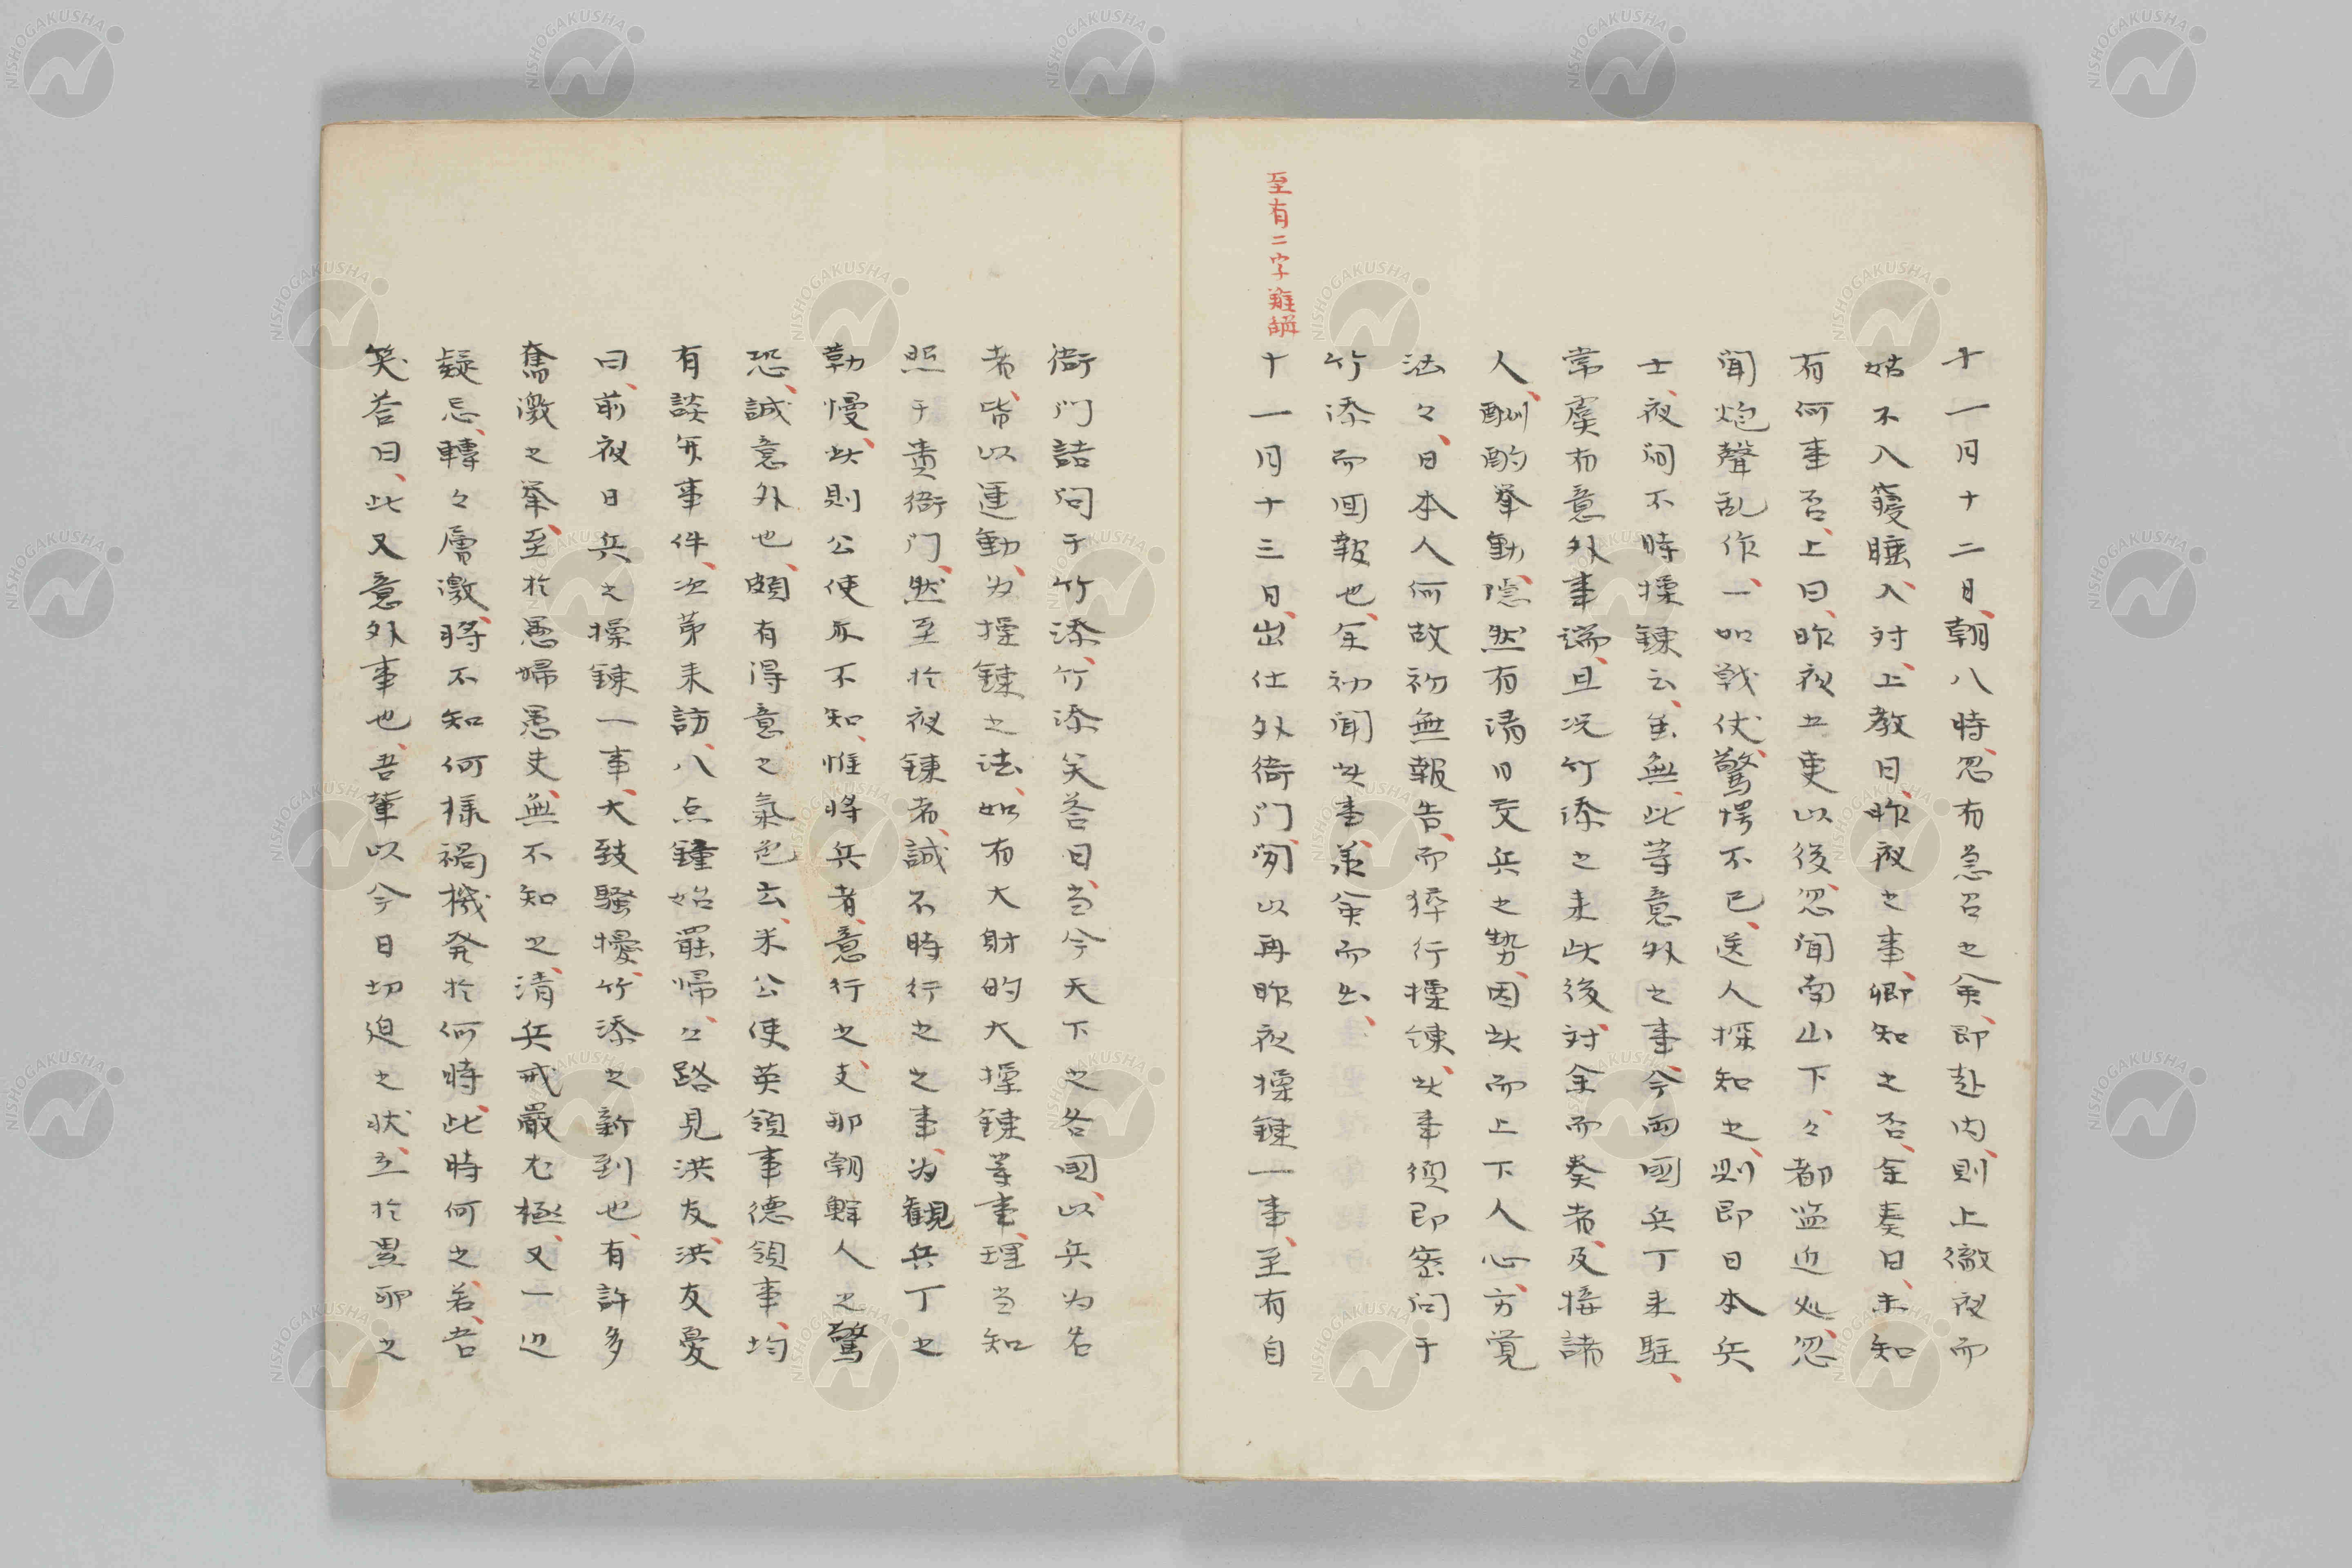 至有二字難解
十一月十二日、朝八時、忽有急召之命、即赴内、則上徹夜而
姑不入寢睡、入対、上教曰、昨夜之事、卿知之否、余奏曰、未知
有何事否、上曰、昨夜五更以後、忽聞南山下々都監近处、忽
聞炮聲乱作、一如戦伏、驚愕不已、送人探知之、則即日本兵
士、夜间不時操錬云、虽無此等意外之事、今両國兵丁来駐、
常虞有意外事端、且况竹添之来此後、対余而奏者、及接諸
人、酬酌挙動、隠然有清日交兵之勢、因此而上下人心、方覚
汹々、日本人何故初無報告、而猝行操錬、此事須即密问于
竹添而回報也、余初聞此事、承命而出、
十一月十三日、出仕外衙门、閔以再昨夜操錬一事、至有自
衙门詰问于竹添、竹添笑荅曰、当今天下之各國、以兵为名
者、皆以運動、为操錬之法、如有大財的大操錬等事、理当知
照于貴衙门、然至於夜錬者、誠不時行之之事、为観兵丁之
勤慢、此則公使亦不知、惟将兵者、意行之、支那朝鮮人之驚
恐、誠意外也、頗有得意之氣色云、米公使英領事德領事、均
有談弁事件、次第来訪、八点鐘始罷帰、々路見洪友、洪友憂
曰、前夜日兵之操錬一事、大致騷擾、竹添之新到也、有許多
奮激之挙、至於愚婦愚夫、無不知之、清兵戒嚴尤極、又一边
疑忌、轉々層激、将不知何樣禍機発於何時、此時何之若、吾
笑荅曰、此又意外事也、吾輩以今日切迫之状、立於累卵之